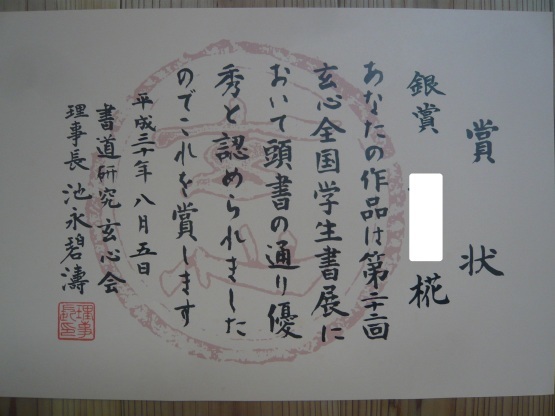 賞状
銀賞
椛
あなたの作品は第二十二回
玄心全国学生書展に
おいて頭書の通り優
秀と認められました
のでこれを賞します
平成三十年八月五日
書道研究玄心会
理事長 池永碧濤
理事長印